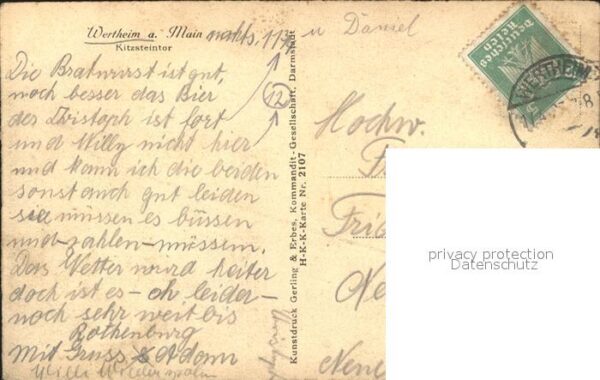 Wertheim a. Main nachts. 11
Kitzsteintor
12
Die Bratwurst ist gut,
noch besser das Bier
der ist fort
und Willy nicht hier
und kann ich die beiden
sonst auch gut leiden
sie müssen es büssen
und zahlen müssen.
Das Wetter wird heiter
doch ist es - oh leider -
noch sehr weit bis
Rothenburg
Mit Gruss & Adam
Willi
Kunstdruck Gerling & Erbes, Kommandit-Gesellschaft, Darmstadt
H-K-K-Karte Nr. 2107
u
Deutsches Reich
WERTHEIM
Hochw.
privacy protection
Datenschutz